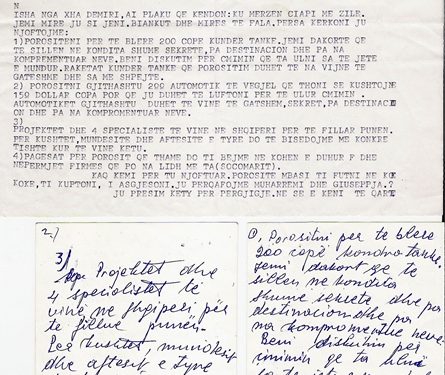 N
ISHA NGA XHA DEMIRI,AI PLAKU QE KENDON:KU MERZEN CIAPI ME ZILE.
JEMI MIRE JU SI JENI.BIANKUT DHE MIRFS TE FALA.PERSA KERKONI JU
NJOFTOJME:
1)POROSITENI PER TE BLERE 200 COPE KUNDER TANKE.JEMI DAKORTE QE
TE SILLEN NE KONDITA SHUME SEKRETE,PA DESTINACION DHE PA NA
KOMPREMENTUAR NEVE.BENI DISKUTIM PER CMIMIN QE TA ULNI SA TE JETE
E MUNDUR.RAKETAT KUNDER TANKE QE POROSITIM DUHET TE NA VIJNE TE
GATESHME DHE SA ME SHPEJTE.
2) POROSITNI GJITHASHTU 299 AUTOMOTIK TE VEGJEL QE THONI SE KUSHTOJNE
150 DOLLAR COPA POR QE JU DUHET TE LUFTONI PER TE ULUR CMIMIN .
AUTOMOTIKET GJITHASHTU DUHET TE VINE TE GATSHEM,SEKRET,PA DESTINACI
ON DHE PA NA KOMPROMENTUAR NEVE.
3)
PROJEKTET DHE 4 SPECIALISTE TE VINE NE SHQIPERI PER TE FILLAR PUNEN.
PER KUSHTET,MUNDESITE DHE AFTESITE E TYRE DO TE BISEDOJME ME KONKRE
TISHTE KUR TE VINE KETU.
4)PAGESAT PER POROSIT QE THAME DO TI BEJME NE KOHEN E DUHUR F DHE
NEPERMJET FIRMES QE PO NA LIDH ME TA(SOCOMARIT).
KAQ KEMI PER TU NJOFTUAR.POROSITE MBASI TI FUTNI NE KO
KOKE,TI KUPTONI, I ASGJESONI.JU PERQAFOJME MUHARREMI DHE GIUSEPPJA.?
JU PRESIM KETY PER PERGJIGJE.NE SE E KENI TE QARTE
2.)
3)
Projektet dhe
4 specialistet te
vinë ne Shqiperi për
te fillue punën.
Per kushtet, mundesit
dhe aftesit e tyne
1, Porositni per te blere
200 copë kondra tanke.
Jemi dakort qe te
sillen ne kondita
shume sekrete dhe pa
destinacion dhe pa
na kompromentue neve.
Beni diskutim per
cmimin qe ta ulni